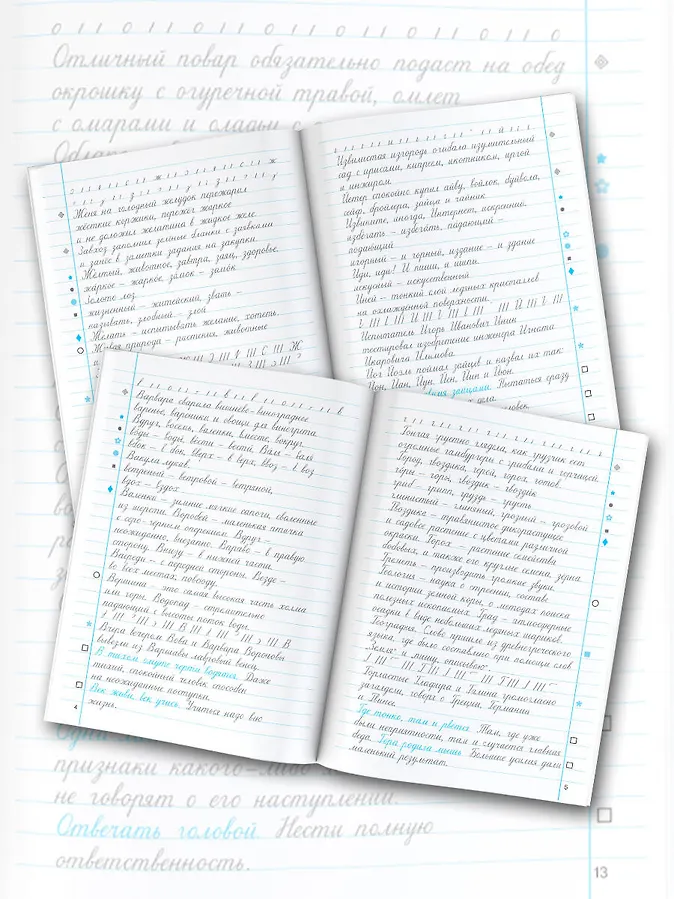 Отличный повар обязательно подаст на обед
окрошку с огуречной травой, омлет
с омарами и оладьи с
Женя на голодный желудок пережарил
жёсткие коржики, пережёг жаркое
и не доложил желатина в жидкое желе.
Завхоз заполнил зелёные бланки с заявками
и занёс в заметки задания на закупки.
Жёлтый, животное, завтра, заяц, здоровье,
жаркое – жаркое, замок – замок.
Золото лоз
жизненный – житейский, звать –
называть, злобный – злой
Желать – испытывать желание, хотеть.
Живая природа – растения, животные
Извилистая изгородь огибала изумительный
сад с ирисами, кипреем, икотником, иргой
и инжиром.
Йстер спокойно купил айву, войлок, буйвола,
сейф, бройлера, зайца и чайник.
Извините, иногда, Интернет, искренно.
избегать – избегать, падающий –
подающий
игорный – и горный, издание – и здание
Иди, иди! И пиши, и ищи.
искусный – искусственный
Иней – тонкий слой ледяных кристаллов
на охлаждённой поверхности.
Испытатель Игорь Иванович Инин
тестировал изобретение инженера Игната
Икаровича Илимова.
Йог Йоэль поймал зайцев и назвал их так:
Йон, Йан, Йун, Йен, Йин и Йоон.
зайцами. Пытаться сразу
дела.
человек,
Варвара сварила вишнёво-виноградное
варенье, вареники и овощи для винегрета.
Вдруг, восемь, валенки, вместе, вокруг.
воды – воды, вести – вести, Вам – вам
вдов – в дом, вверх – в верх, ввоз – в воз
Вакула лукав.
ветреный – ветровой – ветряной,
вдох – вздох
Валенки – зимние мягкие сапоги, сваленные
из шерсти. Воробей – маленькая птичка
с серо-чёрным оперением. Вдруг –
неожиданно, внезапно. Вправо – в правую
сторону. Внизу – в нижней части.
Впереди – с передней стороны. Везде –
во всех местах, повсюду.
Вершина – это самая высокая часть холма
или горы. Водопад – стремительно
падающий с высоты поток воды.
Вчера вечером Вова и Варвара Вороновы
вывезли из Варшавы лавровый венец.
В тихом омуте черти водятся. Даже
тихий, спокойный человек способен
на неожиданные поступки.
Век живи, век учись. Учиться надо всю
жизнь.
4
Гонгия грустно глядела, как грузчик ест
огромные гамбургеры с грибами и горчицей.
Город, гвоздика, герой, горох, готов.
горы – горы, гвоздик – гвоздик
гриб – грипп, грузди – грусть
глинистый – глиняный, грозный – грозовой
Гвоздика – травянистое дикорастущее
и садовое растение с цветами различной
окраски. Горох – растение семейства
бобовых, а также его круглые семена, зёрна.
Греметь – производить громкие звуки.
Геология – наука о строении, составе
и истории земной коры, о методах поиска
полезных ископаемых. Град – атмосферные
осадки в виде небольших ледяных шариков.
География. Слово пришло из древнегреческого
языка, где было составлено при помощи слов
„Земля“ и „пишу, описываю“.
Горластые Глафира и Галина громогласно
загалдели, говоря о Греции, Германии
и Гнинсе.
Где тонко, там и рвётся. Там, где уже
были неприятности, там и случается главная
беда. Гора родила мышь. Большие усилия дали
маленький результат.
5
признаки какого-либо
не говорят о его наступлении.
Отвечать головой. Нести полную
ответственность.
13